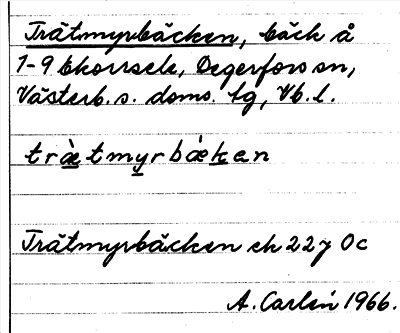 Trätmyrbäcken, bäck å
1-9 Ekorrsele, Degerfors sn,
Västerb. s. doms. tg, Vb. l.
træ̀tmyrbǽkan
Trätmyrbäcken ek 22 j 0c
A. Carlén 1966.